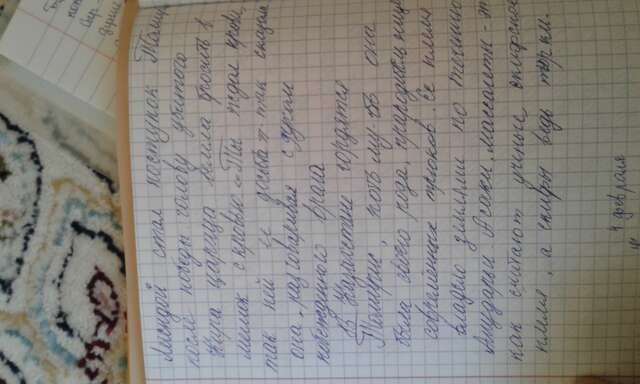 Легидой стал поступок Томир
после победы голову убитого
Кира царица велела бросить в
мешок с кровью. „Ты ждал крови,
так пей ее досыта"- так сказала
она, разговаривая с духом
побежденного врага
В Казахстане гордятся
Томирис, потому-что она
была своего рода, прародительнице
современных тюрков. Ее племя
владело землями по течению
Амударьи. А саки, массагеты - эт
как считают ученые, скифское
племя, а скифы ведь тюрки.
4 февраля